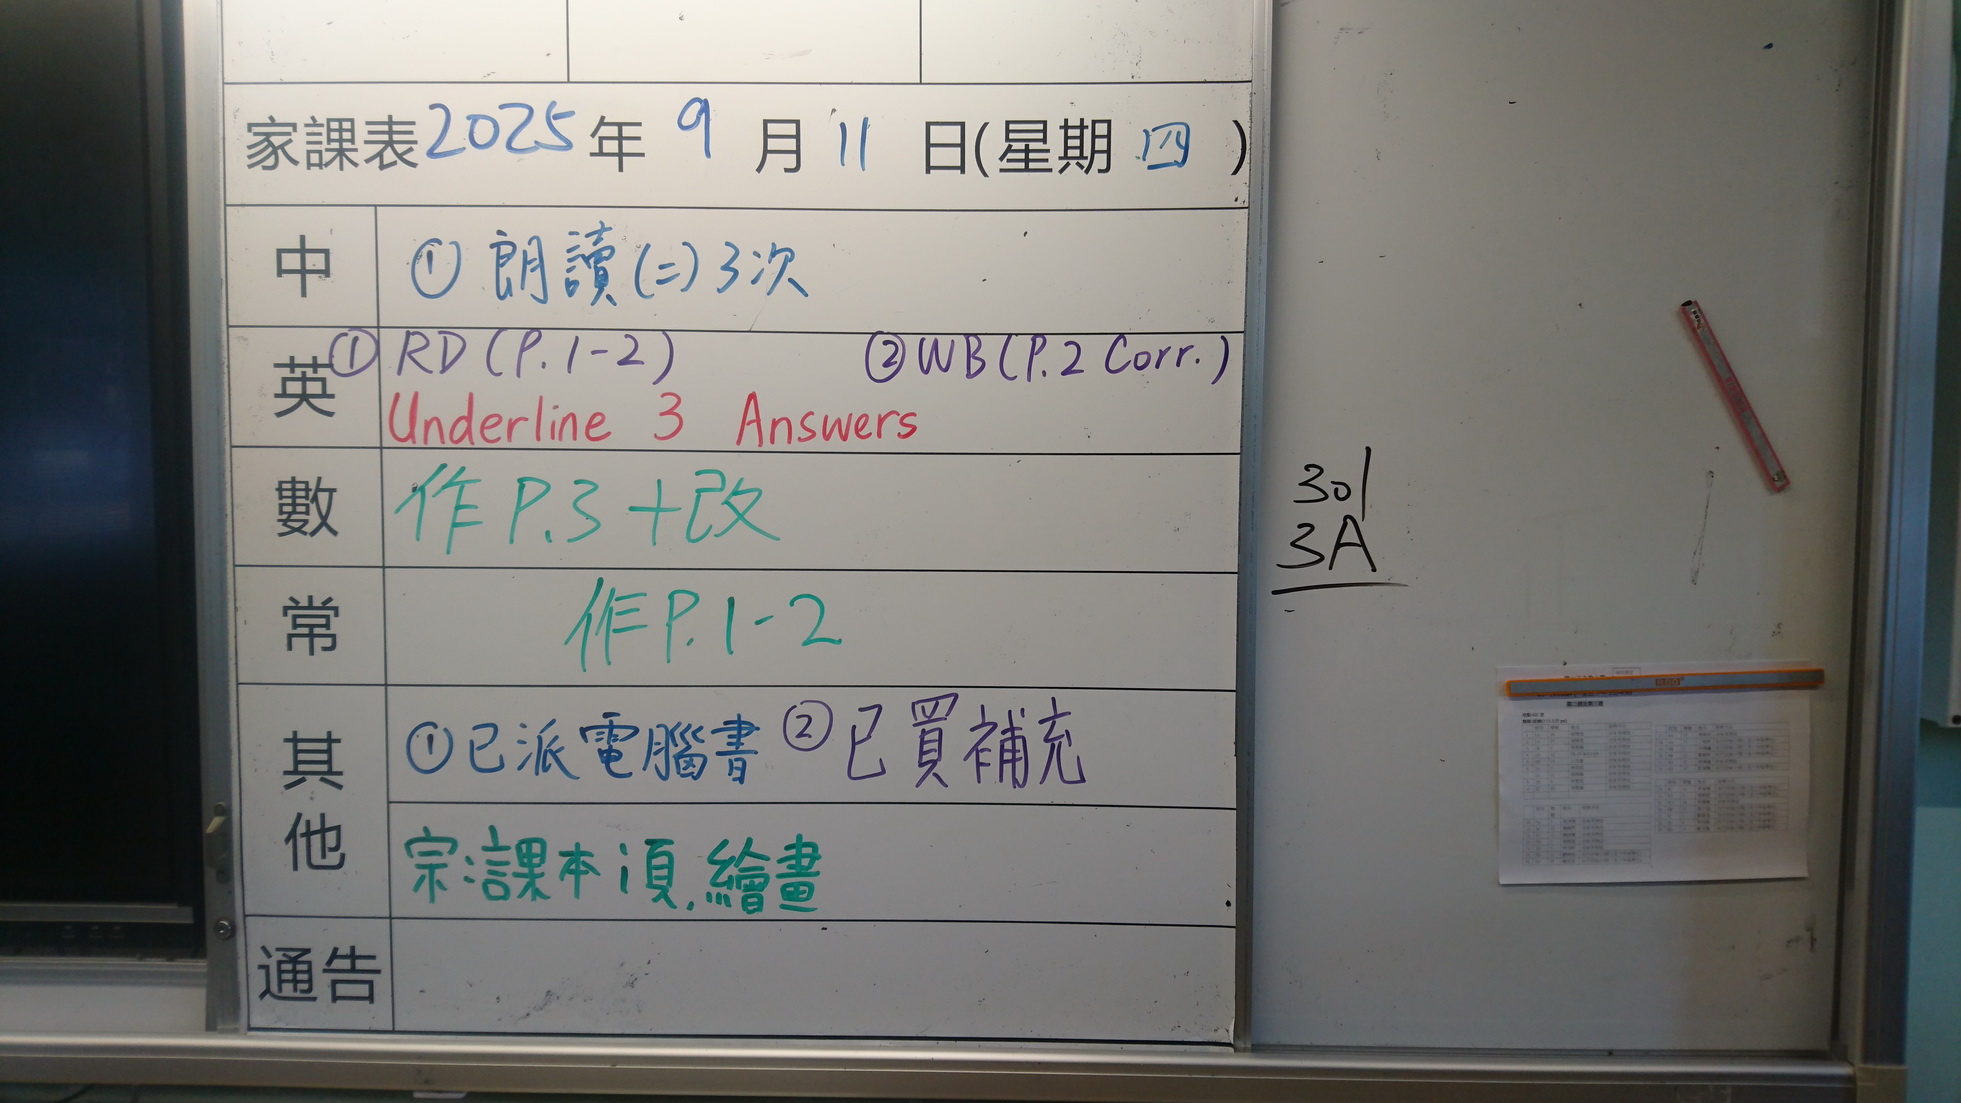 家課表2025年 9 月 11 日(星期 四 )
中 ① 朗讀(二)3次
英 ① RD(P.1-2) ②WB(P.2 Corr.)
Underline 3 Answers
數 作P.3+改
常 作P.1-2
其他 ①已派電腦書 ②已買補充
宗:課本1頁.繪畫
通告
301
3A